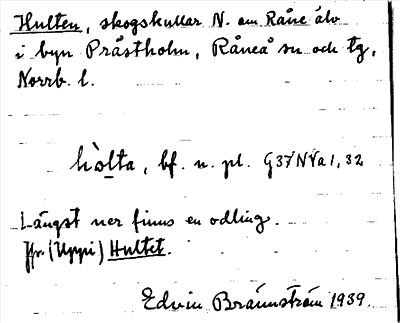 Hulten, skogskullar N. om Råne älv
i byn Prästholm, Råneå sn och tg,
Norrb. l.
hòlta, bf. n. pl. G37NVa1,32
Längst ner finns en odling.
Jfr (Uppi) Hultet.
Edvin Brännström 1939.